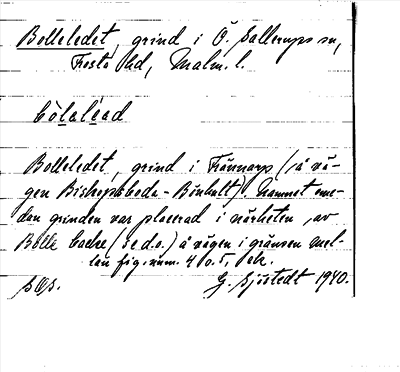 Bolleledet, grind i Ö. Sallerups sn,
Frosta hd, Malm. l.
bòlalèad
Bolleledet, grind i Frännarp (å vä-
gen Biskopsboda - Bönhult). Namnet eme-
dan grinden var placerad i närheten av
Bolle backe (se d.o.) å vägen i gränsen mel-
lan fig. num. 4 o. 5,
G. Sjöstedt 1940.